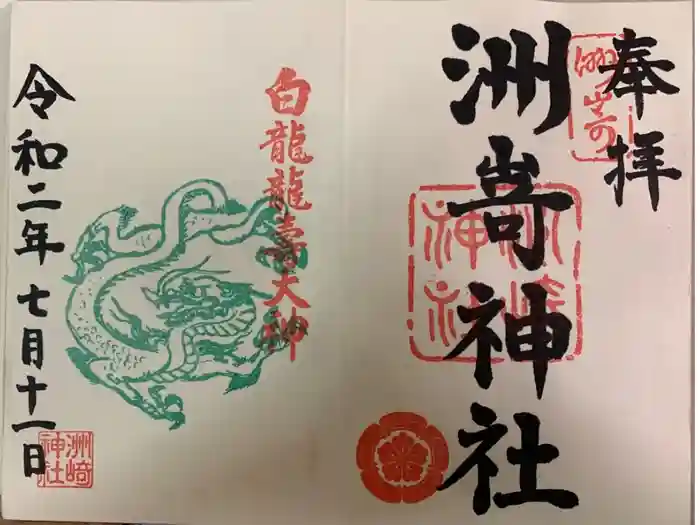 奉拝
洲崎
洲㟢神社
洲崎神社
白龍龍壽大神
令和二年七月十一日
洲崎神社